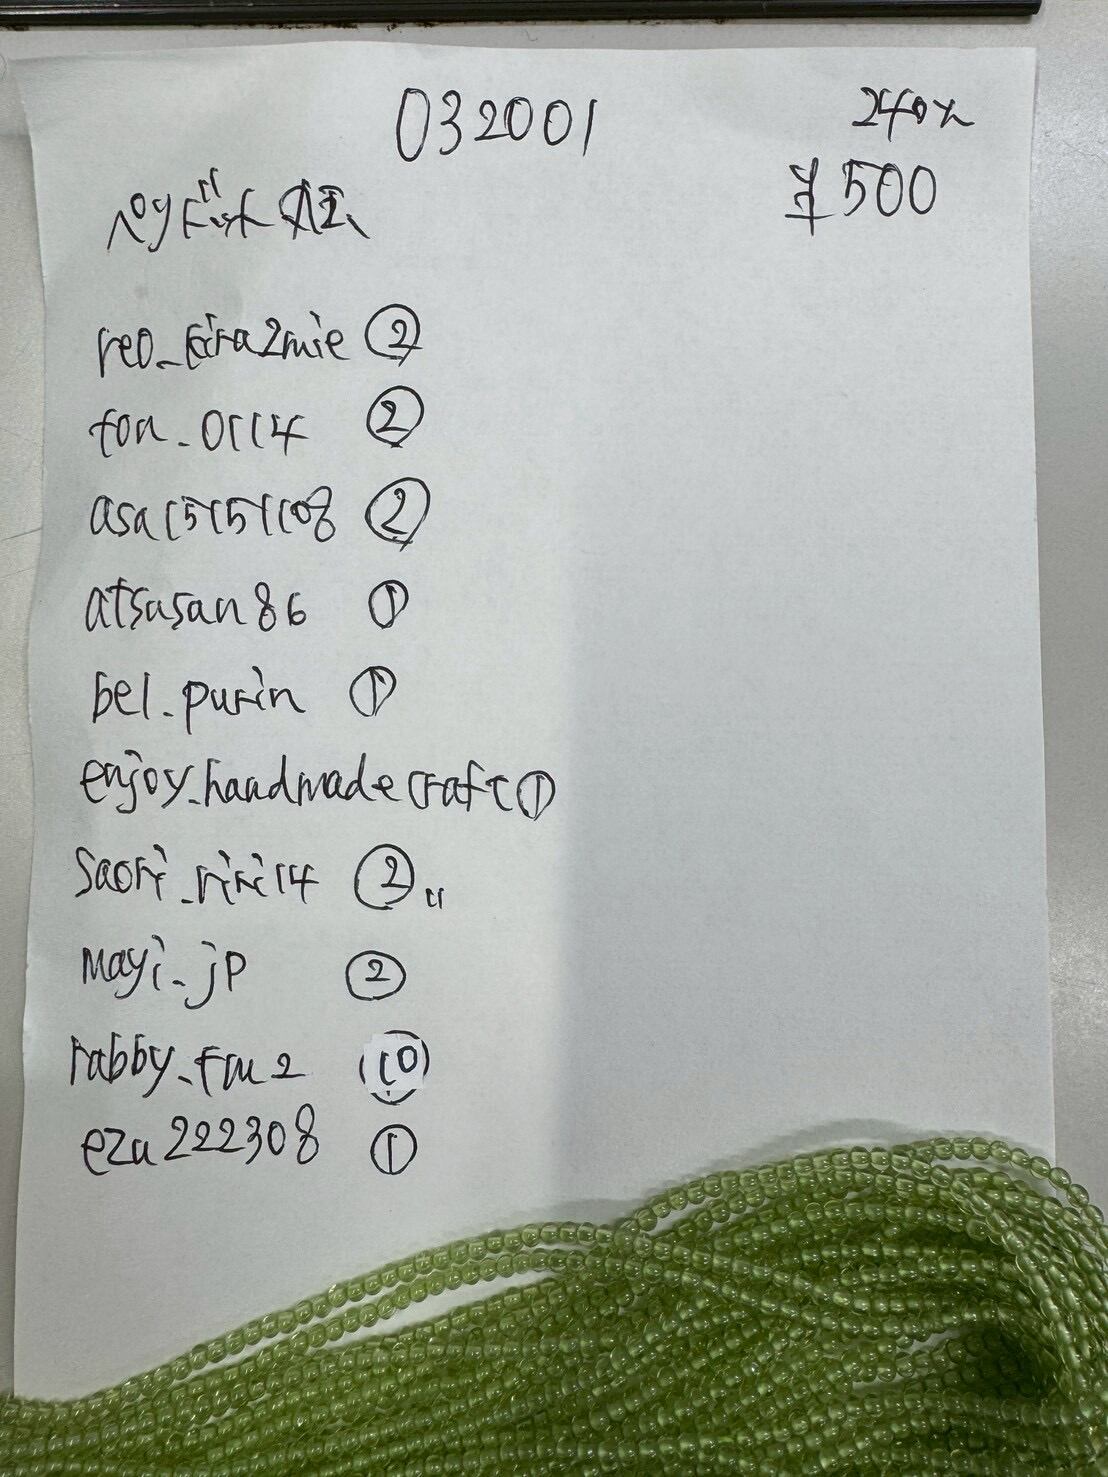 032001
¥500
ペリドット
reo_kira2mie ②
ton_0114 ②
asa15151108 ②
atsusan86 ①
bel_purin ①
enjoy_handmadecraft ①
saori_riri14 ②
mayi_jp ②
rabby_fm2 ⑩
eza222308 ①